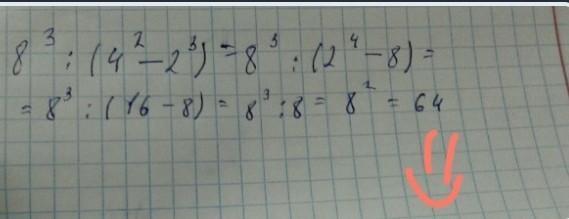 8³ : (4² - 2³) = 8³ : (2⁴ - 8) =
= 8³ : (16 - 8) = 8³ : 8 = 8² = 64